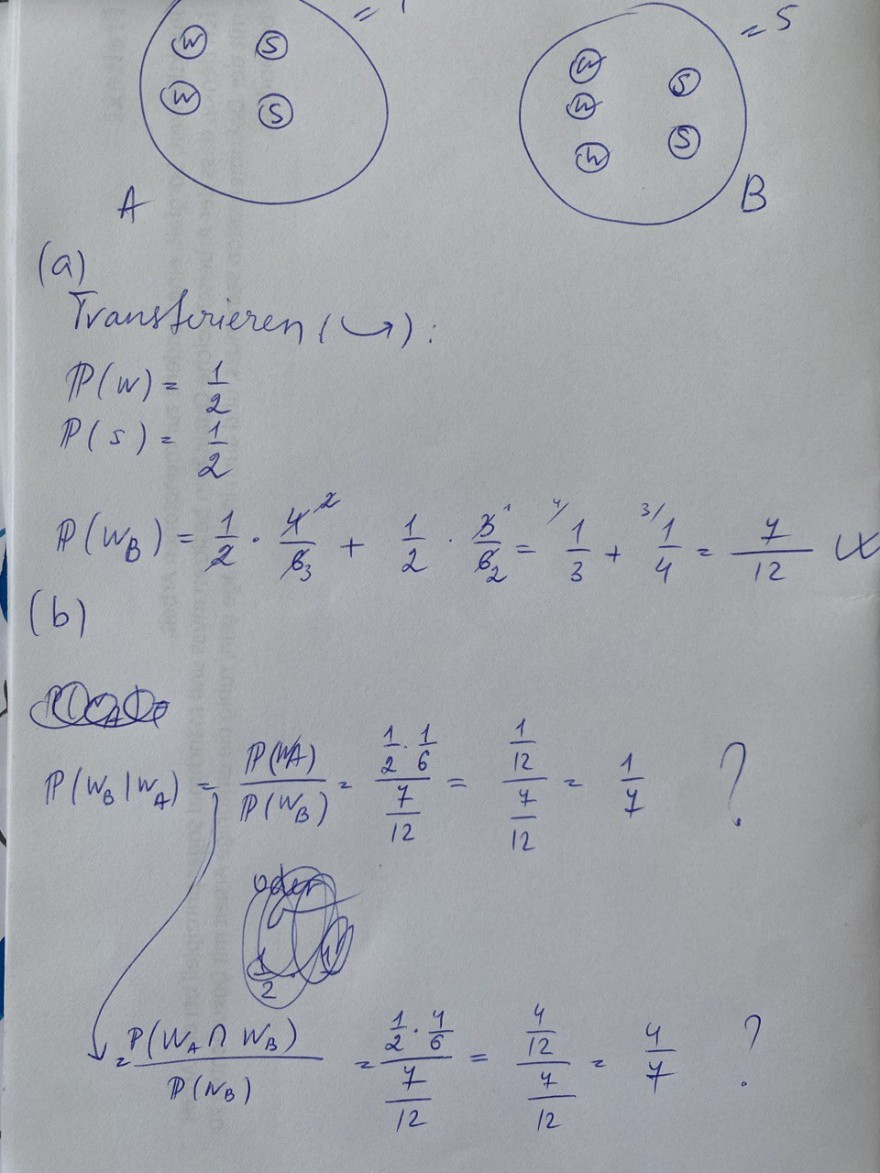 W S = 5
W S
W S
W S
W
A B
(a)
Transferieren (↪):
ℙ(w) = 1/2
ℙ(s) = 1/2
ℙ(W_B) = 1/2 · 4/6 2/3 + 1/2 · 3/6 1/2 = 4/ 1/3 + 3/ 1/4 = 7/12
(b)
ℙ(W_B|W_A) = ℙ(WA)/ℙ(W_B) = (1/2 · 1/6)/(7/12) = (1/12)/(7/12) = 1/7 ?
oder
1/2
= ℙ(W_A ∩ W_B)/ℙ(W_B) = (1/2 · 4/6)/(7/12) = (4/12)/(7/12) = 4/7 ?